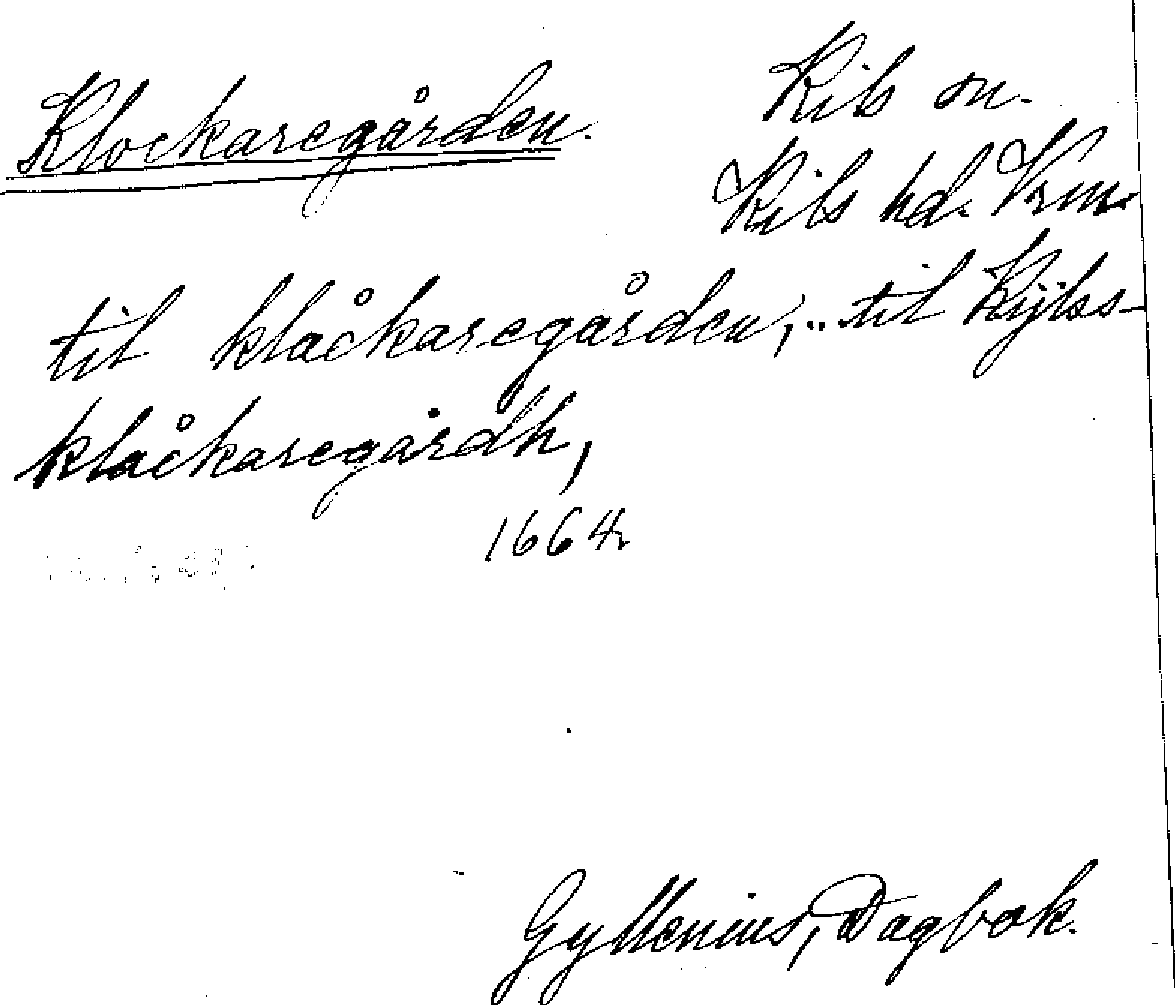 Klockaregården.
Kils sn.
Kils hd. Vrm.
til klåckaregården, .. til Kijlss-
klåckaregårdh,
1664.
Gyllenius, Dagbok.